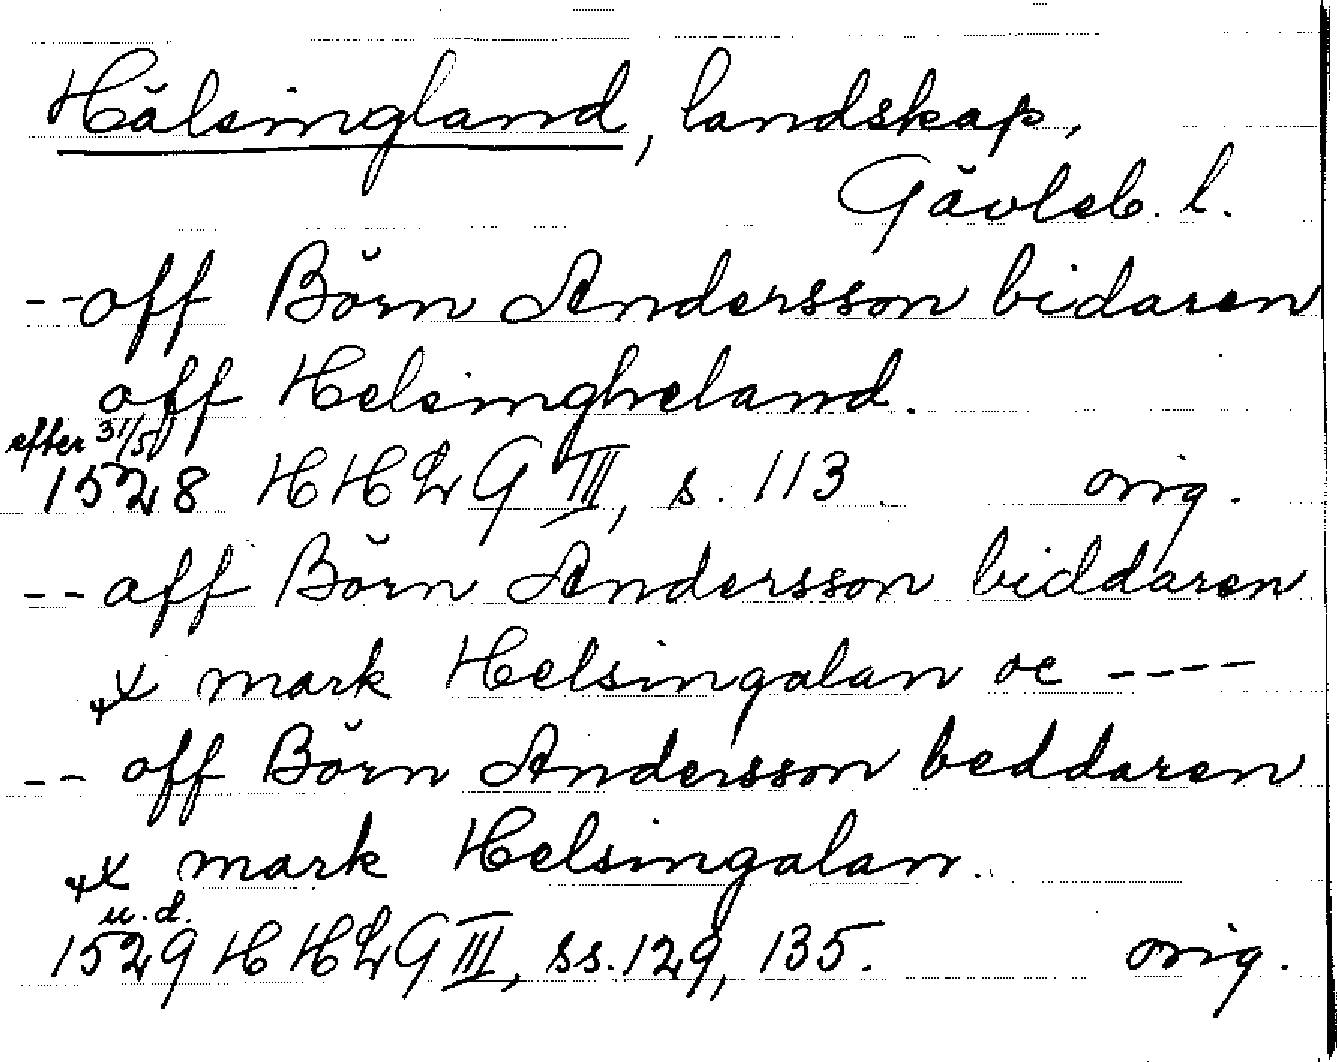 Hälsingland, landskap,
Gävleb. l.
-- off Börn Andersson bidaren
off Helsingheland.
efter 31/5
1528 HHLG III, s. 113. orig.
-- aff Börn Andersson biddaren
x mark Helsingalan oc ----
-- off Börn Andersson beddaren
x mark Helsingalan.
u. d.
1529 HHLG III, ss. 129, 135. orig.